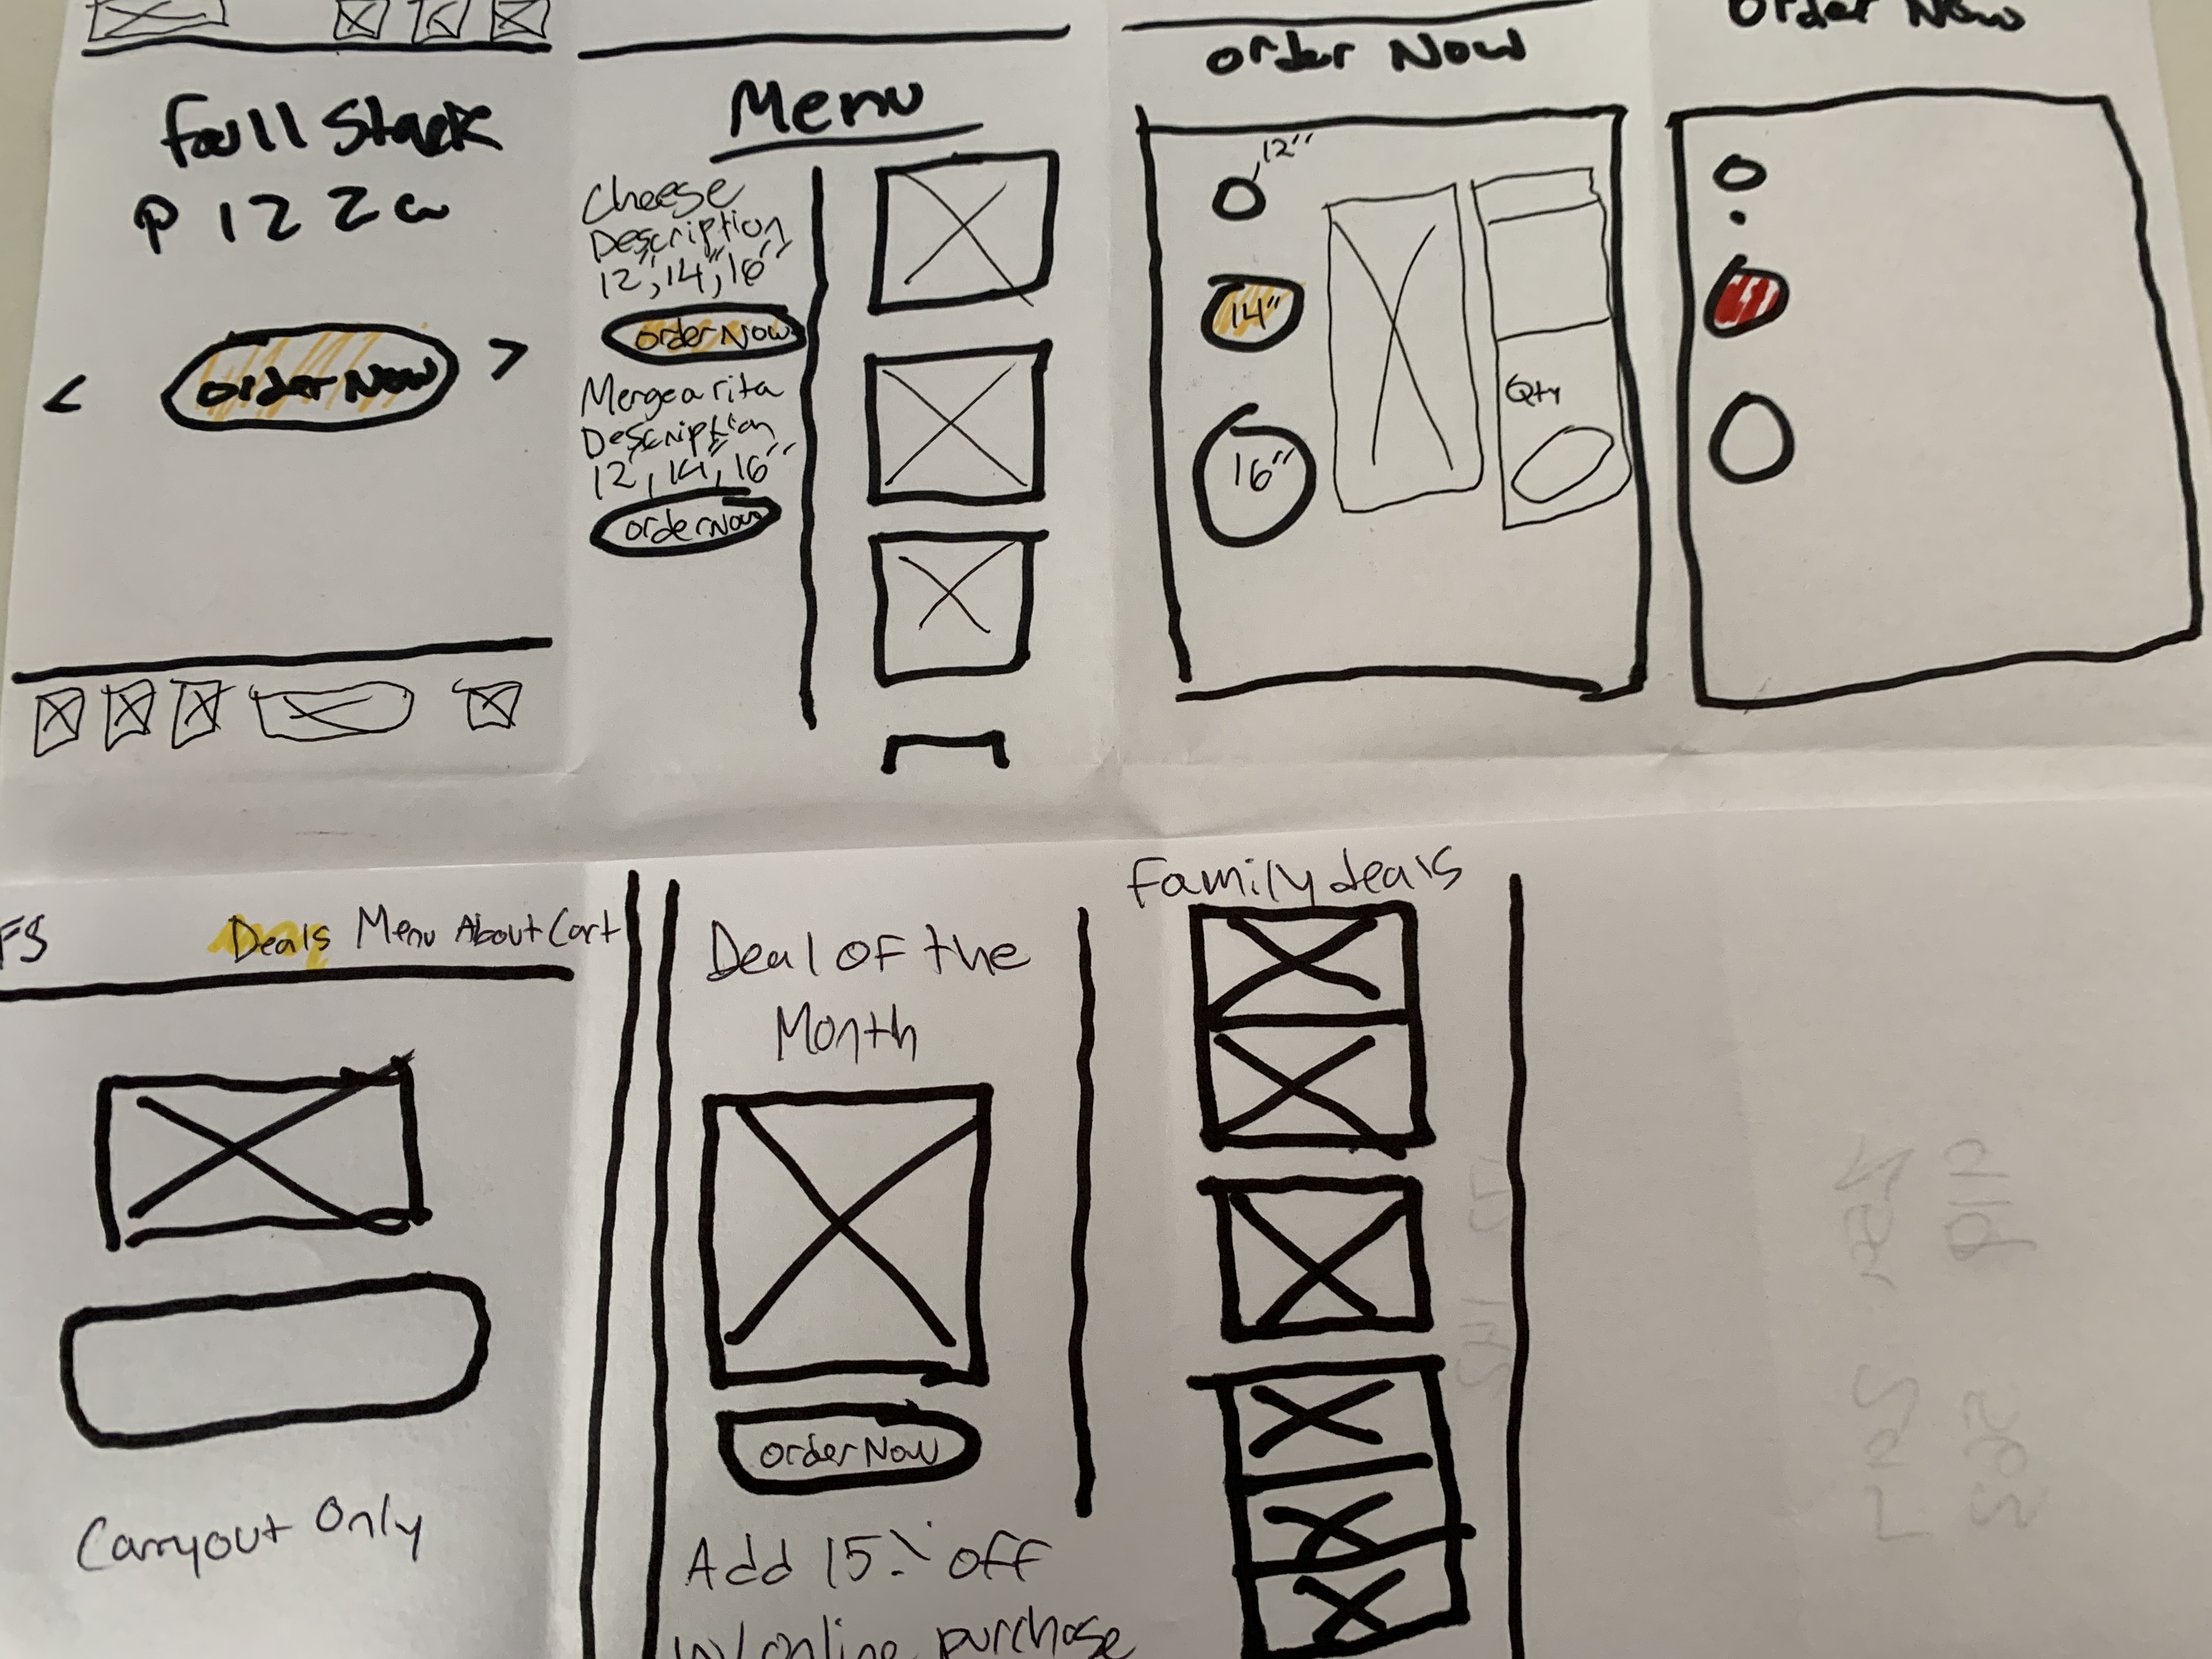 Full Stack
P122a
<
Order Now
>
Menu
Cheese
Description
12", 14", 16"
Order Now
Mergearita
Description
12", 14", 16"
Order Now
Order Now
12"
14"
16"
Qty
Order Now
FS
Deals Menu About Cart
Carryout Only
Deal OF the
Month
Order Now
Add 15% off
w/ online purchase
Family deals